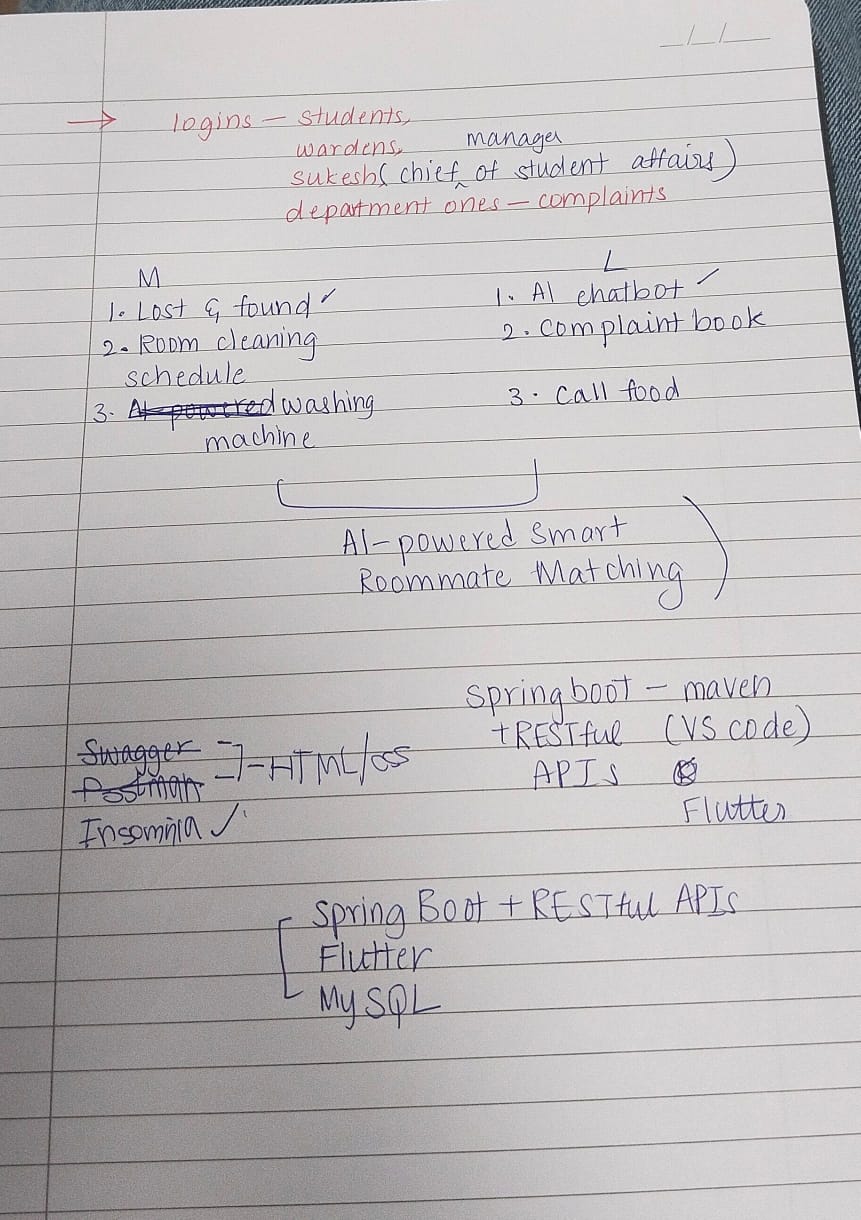 → logins – students,
wardens,
manager
sukesh( chief ‸ of student affairs)
department ones – complaints
M
1. Lost & found ✓
2. Room cleaning
schedule
3. AI-powered washing
machine
L
1. AI chatbot ✓
2. complaint book
3. call food
AI-powered Smart
Roommate Matching
springboot – maven
+RESTful (VS code)
APIs
Flutter
Swagger
Postman
]-HTML/css
Insomnia ✓
Spring Boot + RESTful APIs
Flutter
MySQL